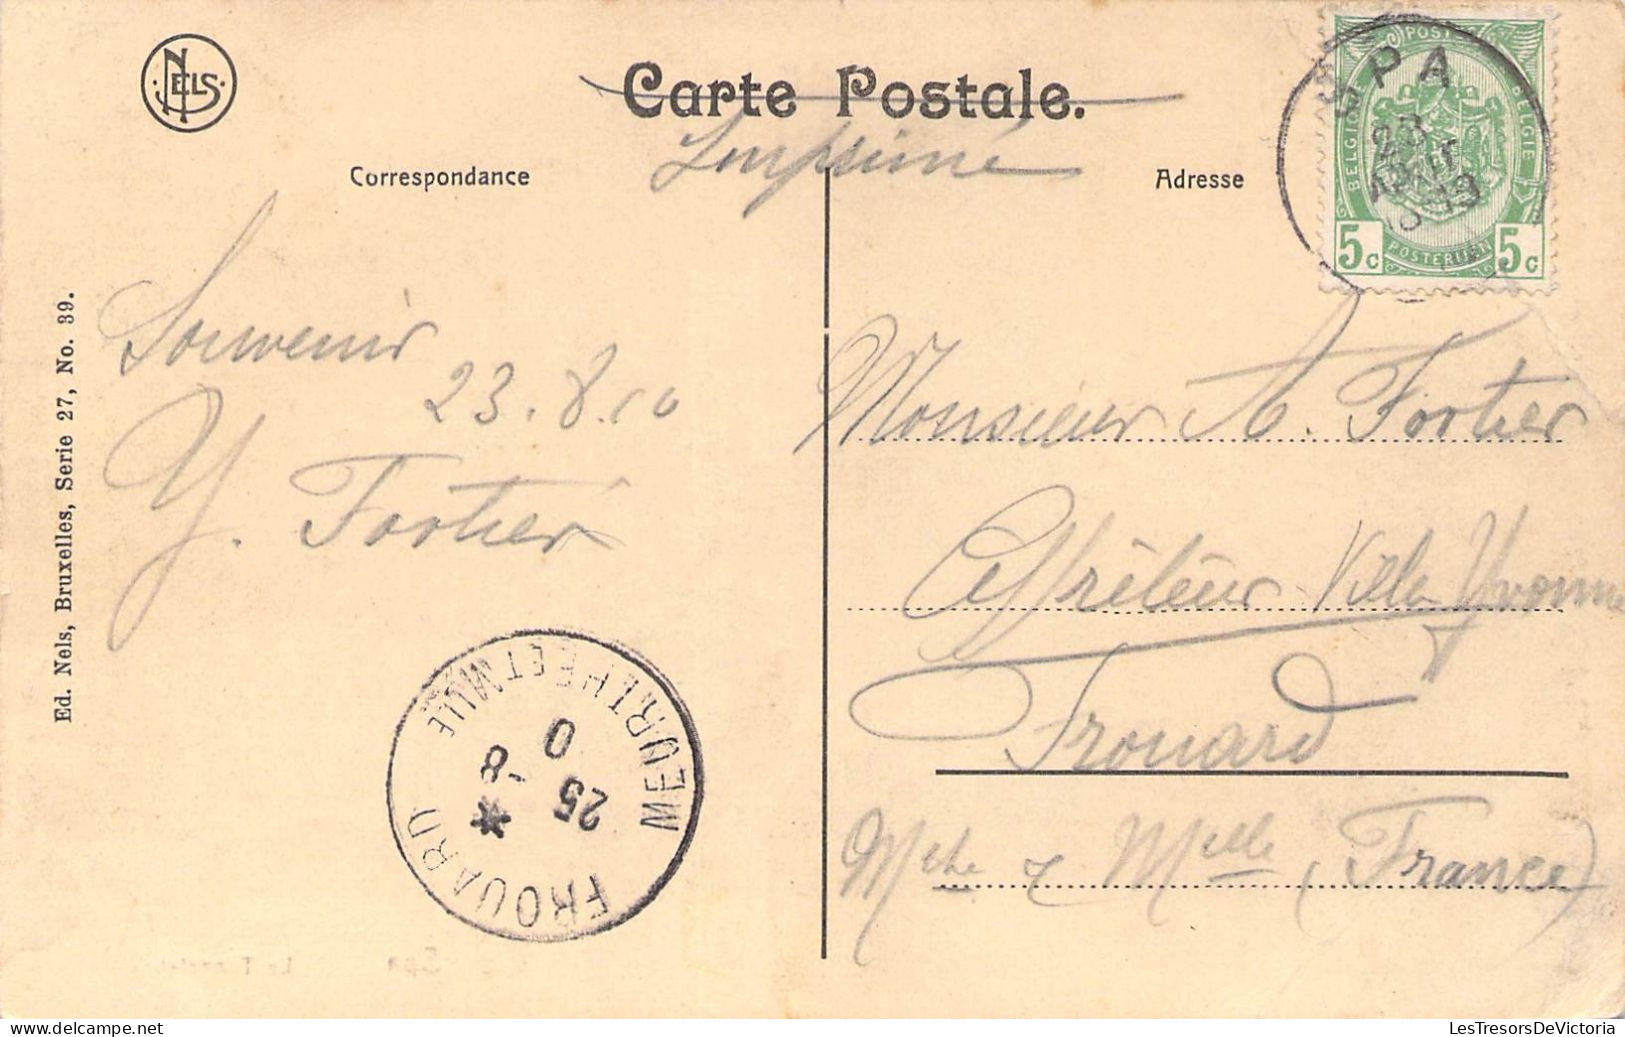 NELS
Carte Postale.
Imprimé
Correspondance
Adresse
SPA
23
AOUT
POSTES
BELGIQUE
BELGIË
POSTERIJEN
5c 5c
Ed. Nels, Bruxelles, Serie 27, No. 39.
Souvenir
23.8.10
Y. Fortier
Monsieur A. Fortier
Villa Yvonne
Frouard
Mthe & Mselle (France)
FROUARD MEURTHE ET MLLE
25 -8
0
Spa
LesTresorsDeVictoria